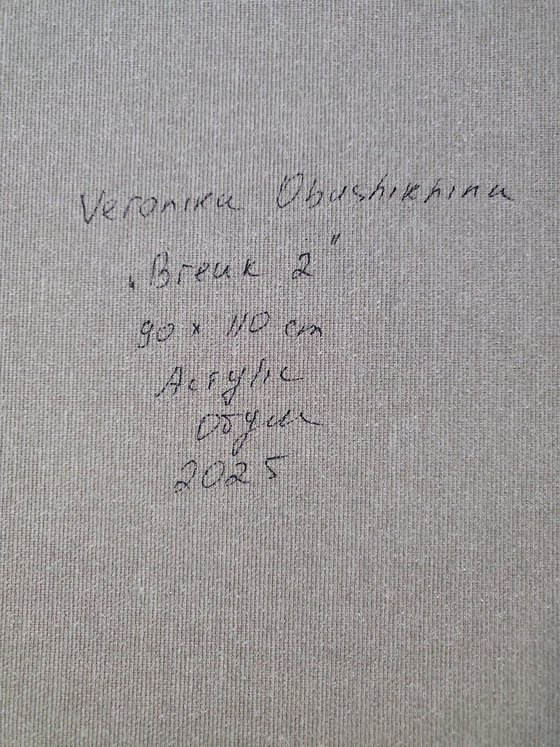 Veronika Obushikhina
„Break 2”
90 x 110 cm
Acrylic
2025